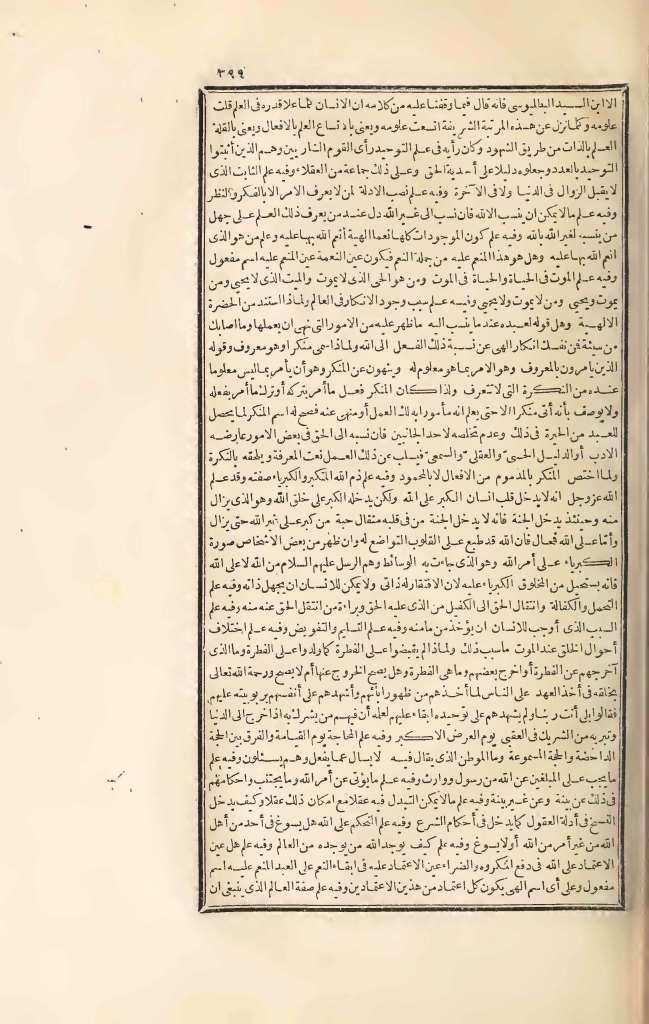 ٣٩٩
الا ابن السيد البطليوسى فانه قال فيما وقفنا عليه من كلامه ان الانسان كلما علا قدره فى العلم قلت
علومه وكلما نزل عن هذه المرتبة الشريفة اتسعت علومه ويعنى باتساع العلم بالافعال ويعنى بالقلة
العلم بالذات من طريق الشهود وكان رأيه فى علم التوحيد رأى القوم الذين أثبتوا
التوحيد بالعدد وجعلوه دليلا على أحدية الحق وعلى ذلك جماعة من العقلاء وفيه علم الثابت الذى
لا يقبل الزوال فى الدنيا ولا فى الآخرة وفيه علم نصب الادلة لمن لا يعرف الامر الا بالفكر والنظر
وفيه علم مالا يمكن ان ينسب الا لله فان نسب الى غير الله دل عند من يعرف ذلك العلم على جهل
من ينسبه لغير الله بالله وفيه علم كون الموجودات كلها نعما الهية أنعم الله بها عليه وعلم من هو الذى
انعم الله بها عليه وهل هو هذا المنعم عليه من جملة النعم فيكون عين النعمة عين المنعم عليه اسم مفعول
وفيه علم الموت فى الحياة والحياة فى الموت ومن هو الحى الذى لا يموت والميت الذى لا يحيى ومن
يموت ويحيى ومن لا يموت ولا يحيى وفيه علم سبب وجود الانكار فى العالم ولماذا استند من الحضرة
الالهية وهل قوله لعبيده عند ما ينسب اليه ما ظهر عليه من الامور التى نهى ان يعملها وما اصابك
من سيئة فمن نفسك انكار الهى عن نسبة ذلك الفعل الى الله ولماذا سمى منكرا وهو معروف وقوله
الذين يامرون بالمعروف وهو الامر بما هو معلوم له وينهون عن المنكر وهو أن يأمر بما ليس معلوما
عنده من النكرة التى لا تتعرف ولذا كان المنكر فعل ما أمر بتركه أو ترك ما أمر بفعله
ولا يوصف بأنه أتى منكرا الا حتى يعلم انه مأمور به ذلك العمل أو منهى عنه فصح له اسم المنكر لما يحصل
للعبد من الحيرة فى ذلك وعدم تخلصه لاحد الجانبين فان نسبه الى الحق فى بعض الامور عارضه
الادب أو الدليل الحسى والعقلى والسمعى فيسلب عن ذلك العمل نعت المعرفة ويلحقه بالنكرة
ولما اختص المنكر بالمذموم من الافعال لا بالمحمود وفيه علم ذم الله المتكبر والكبرياء صفته وقد علم
الله عز وجل انه لا يدخل قلب انسان الكبر على الله ولكن يدخله الكبر على خلق الله وهو الذى يزال
منه وحينئذ يدخل الجنة فانه لا يدخل الجنة من فى قلبه مثقال حبة من كبر على غير الله حتى يزال
وأما على الله فمحال فان الله قد طبع على القلوب التواضع له وان ظهر من بعض الاشخاص صورة
الكبرياء على أمر الله وهو الذى جاءت به الوسائط وهم الرسل عليهم السلام من الله لا على الله
فانه يستحيل من المخلوق الكبرياء عليه لان الافتقار له ذاتى ولا يمكن للانسان ان يجهل ذاته وفيه علم
التحمل والكفالة وانتقال الحق الى الكفيل من الذى عليه الحق وبراءة من انتقل الحق عنه منه وفيه علم
السبب الذى أوجب للانسان ان يؤخذ من مأمنه وفيه علم التسليم والتفويض وفيه علم اختلاف
أحوال الخلق عند الموت ما سبب ذلك ولماذا لم يقبضوا على الفطرة كما ولدوا على الفطرة وما الذى
أخرجهم عن الفطرة أو اخرج بعضهم وما هى الفطرة وهل يصح الخروج عنها أم لا يصح ورحمة الله تعالى
بخلقه فى أخذ العهد على الناس لما أخذهم من ظهور ابائهم وأشهدهم على أنفسهم بربوبيته عليهم
فقالوا بلى أنت ربنا ولم يشهدهم على توحيده ابقاء عليهم لعلمه أن فيهم من يشرك به اذا خرج الى الدنيا
وتبريه من الشريك فى العقبى يوم العرض الاكبر وفيه علم المحاجة يوم القيامة والفرق بين الحجة
الداحضة والحجة المسموعة وما الموطن الذى يقال فيه لا يسأل عما يفعل وهم يسئلون وفيه علم
ما يجب على المبلغين عن الله من رسول ووارث وفيه علم ما يؤتى عن أمر الله وما يجتنب واحكامهم
فى ذلك عن بينة وعن غير بينة وفيه علم ما لا يمكن التبدل فيه عقلا مع امكان ذلك عقلا وكيف يدخل
النسخ فى أدلة العقول كما يدخل فى أحكام الشرع وفيه علم التحكم على الله هل يسوغ فى أحد من أهل
الله من غير أمر من الله أو لا يسوغ وفيه علم كيف يوجد الله من يوجده من العالم وفيه علم هل عين
الاعتماد على الله فى دفع المكروه والضراء عين الاعتماد عليه فى ابقاء النعم على العبد المنعم عليه اسم
مفعول وعلى أى اسم الهى يكون كل اعتماد من هذين الاعتمادين وفيه علم صفة العالم الذى ينبغى ان